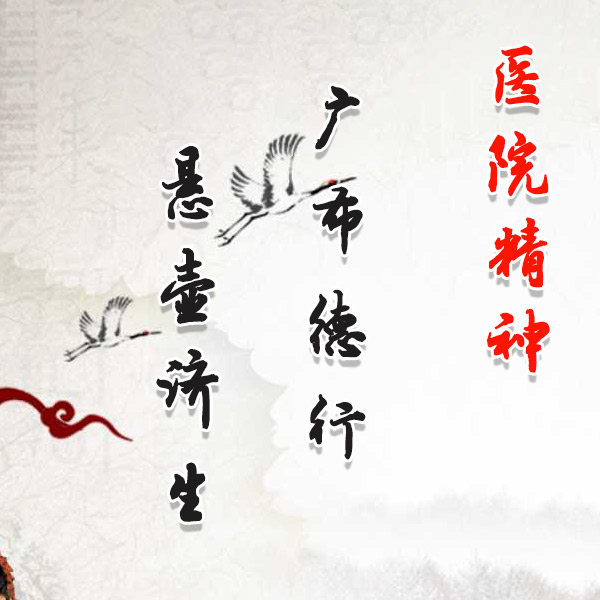 医院精神
广布德行
悬壶济生